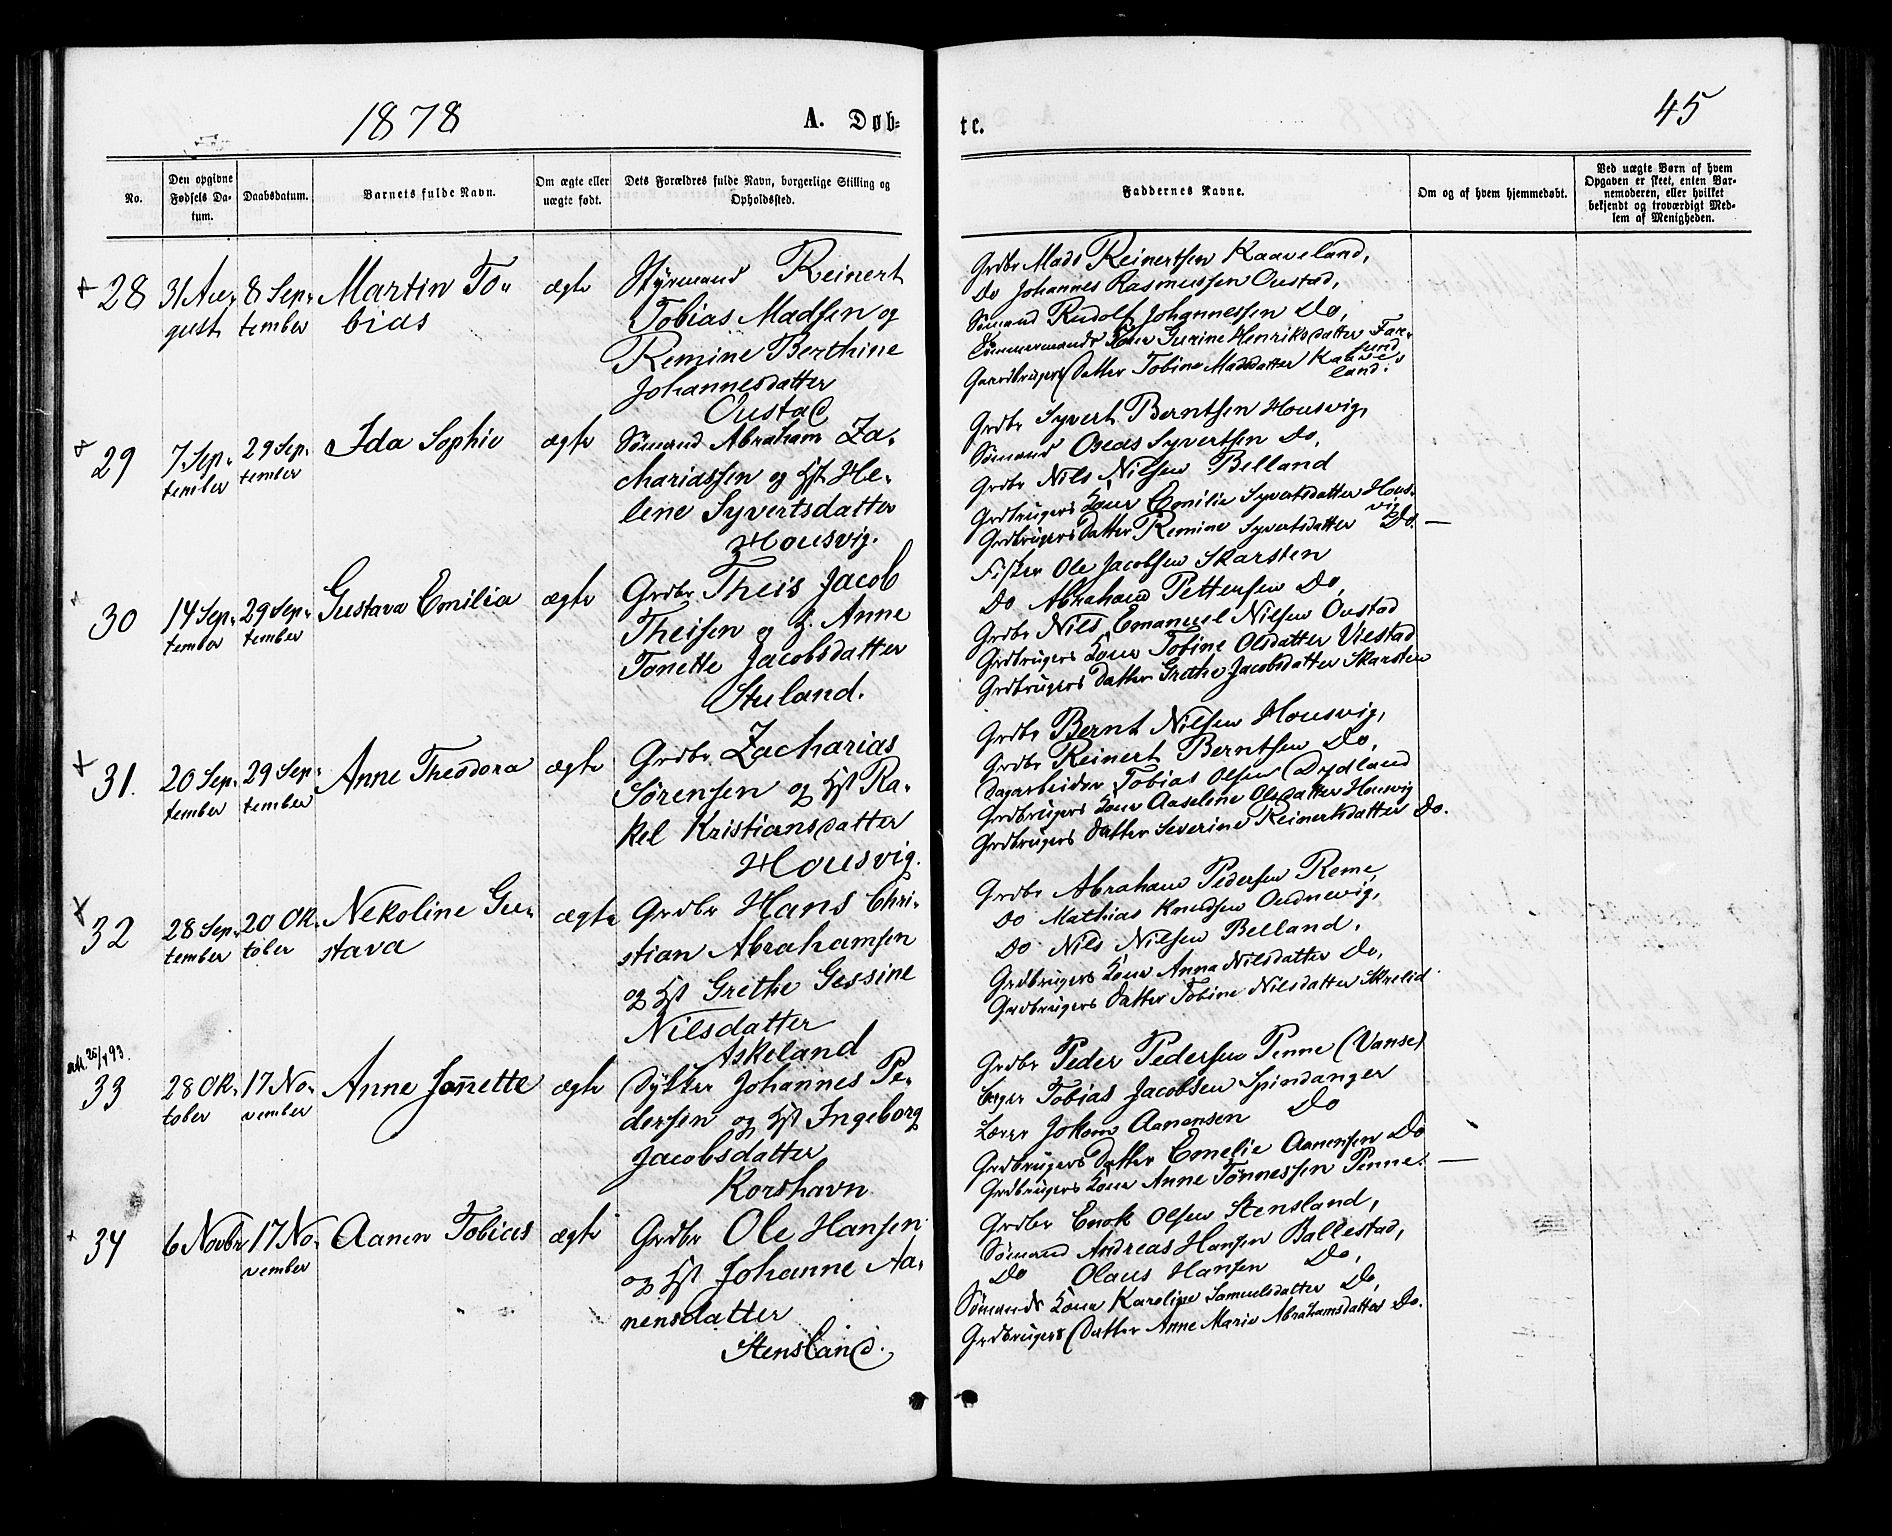 1878
A. Døb-
te.
45
No.
Den opgivne Fødsels Da-tum.
Daabsdatum.
Barnets fulde Navn.
Om ægte eller uægte født.
Dets Forældres fulde Navn, borgerlige Stilling og Opholdssted.
Faddernes Navne.
Om og af hvem hjemmedøbt.
Ved uægte Børn af hvem Opgaven er skeet, enten Bar-nemoderen, eller hvilket bekjendt og troværdigt Med-lem af Menigheden.
28
31 Au-
gust
8 Sep-
tember
Martin To-
bias
ægte
Styrmand Reinert
Tobias Madssen og
Remine Berthine
Johannesdatter
Oustad
Grdbr Mads Reinertsen Kaaveland,
Do Johannes Rasmussen Oustad,
Sømand Rudolf Johannessen Do,
Tømmermands Kone Gurine Henriksdatter Far-
sund
Gaardbrugers Datter Tobine Madsdatter Kaave-
land.
29
7 Sep-
tember
29 Sep-
tember
Ida Sophie
ægte
Sømand Abraham Za-
chariassen og Hst He-
lene Syvertsdatter
Housvig.
Grdbr Syvert Berntsen Housvig,
Sømand Oseas Syvertsen Do,
Grdbr Nils Nilsen Belland
Grdbrugers Kone Emilie Syvertsdatter Hous-
vig
Grdbrugers Datter Remine Syvertsdatter Do. —
30
14 Sep-
tember
29 Sep-
tember
Gustava Emilia
ægte
Grdbr Theis Jacob
Theisen og H. Anne
Tonette Jacobsdatter
Stuland.
Fisker Ole Jacobsen Skarsten
Do Abraham Pettersen Do,
Grdbr Nils Emanuel Nilsen Oustad
Grdbrugers Kone Tobine Olsdatter Viestad
Grdbrugers Datter Grethe Jacobsdatter Skarsten
31.
20 Sep-
tember
29 Sep-
tember
Anne Theodora
ægte
Grdbr Zacharias
Sørensen og Hst Ra-
kel Kristiansdatter
Housvig.
Grdbr Bernt Nilsen Housvig,
Grdbr Reinert Berntsen Do,
Dagarbeider Tobias Olsen Dydland
Grdbrugers Kone Aaseline Olsdatter Housvig
Grdbrugers Datter Severine Reinertsdatter Do.
32
28 Sep-
tember
20 Ok-
tober
Nekoline Gu-
stava
ægte
Grdbr Hans Chri-
stian Abrahamsen
og Hst Grethe Gessine
Nilsdatter
Askeland
Grdbr Abraham Pedersen Reme,
Do Mathias Knudsen Oudnevig,
Do Nils Nilsen Belland,
Grdbrugers Kone Anna Nilsdatter Do,
Grdbrugers Datter Tobine Nilsdatter Skrelid
33
28 Ok-
tober
17 No-
vember
Anne Jonette
ægte
Dykker Johannes Pe-
dersen og Hst Ingeborg
Jacobsdatter
Korshavn
Grdbr Peder Pedersen Penne (Vanse)
Tobias Jacobsen Spindanger
Lærer Jokom Aanensen Do
Grdbrugers Datter Emelie Aanensen Do
Grdbrugers Kone Anne Tønnessen Penne. —
34
6 Novbr
17 No-
vember
Aanen Tobias
ægte
Grdbr Ole Hansen
og Hst Johanne Aa-
nensdatter
Stensland.
Grdbr Enok Olsen Stensland,
Sømand Andreas Hansen Ballestad,
Do Olaus Hansen Do,
Sømands Kone Karoline Samuelsdatter Do,
Grdbrugers Datter Anne Marie Abrahamsdatter Do.